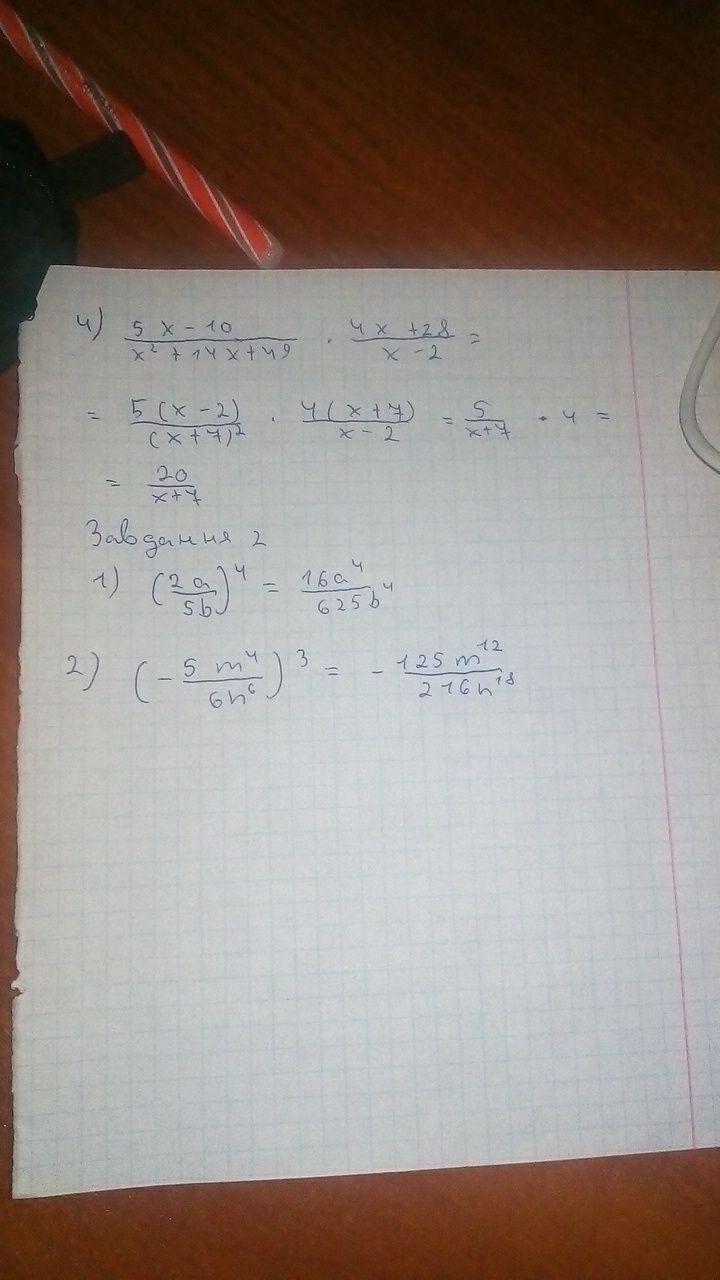 4) (5x - 10)/(x² + 14x + 49) · (4x + 28)/(x - 2) =
= 5(x - 2)/(x + 7)² · 4(x + 7)/(x - 2) = 5/(x+7) · 4 =
= 20/(x+7)
Завдання 2
1) (2a/5b)⁴ = 16a⁴/625b⁴
2) (- 5m⁴/6n⁶)³ = - 125m¹²/216n¹⁸